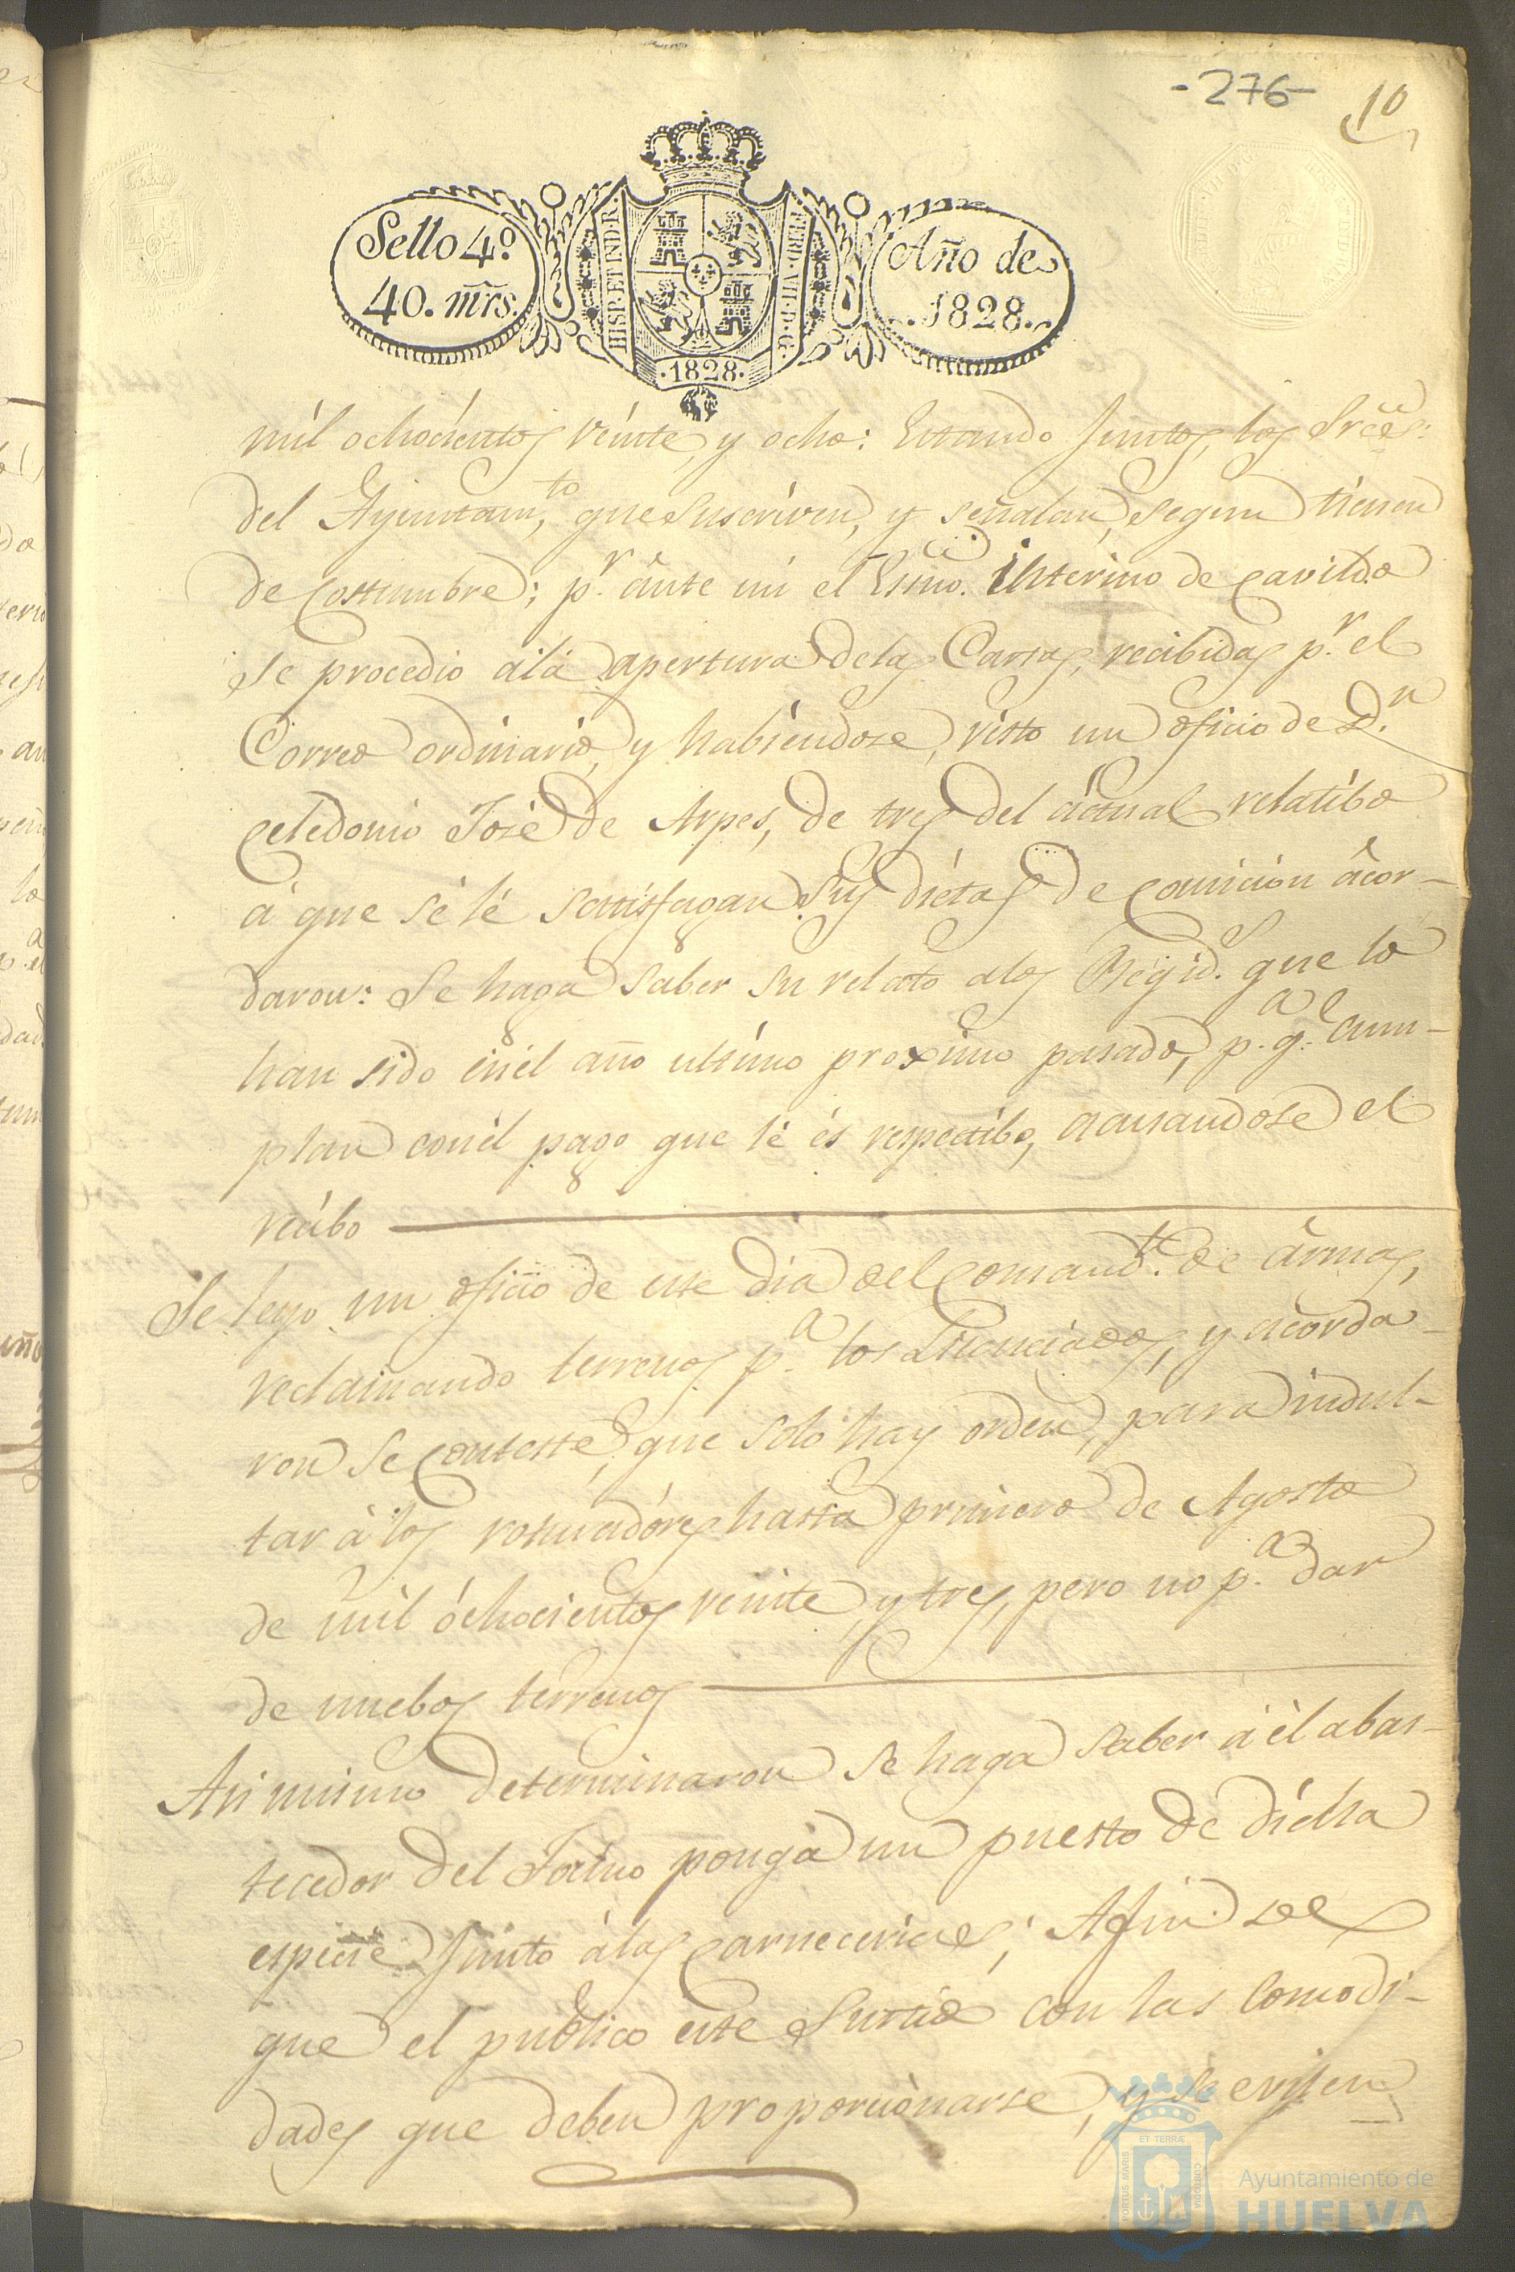 -276-
10
Sello 4º
40. mrs.
HISP. ET IND. R.
FERD. VII. D. G.
Año de
1828.
·1828·
mil ochocientos veinte, y ocho: Estando Juntos, los Srēs.
del Ayuntamto, que Suscriven, y señalan, Segun tienen
de Costumbre; pr. ânte mi el Essno. interino de Cavildo
Se procedio alá apertura delas Cartas, recibidas pr. el
Correo ordinario, y habiendose, visto un oficio de Dn.
Celedonio José de Arpes, de tres del áctual relatibo
á que sé lé Sattisfagan Sus diétas de Comicion âcor-
daron: Se haga Saber Su relato alos Régids. que lo
han sido enél año ultimo proximo pasado, pa. qe. cum-
plan conél pago que lé és respectibo, acusandose el
recibo
Se leyo un oficio de este dia del Comandte. de ârmas,
reclamando terrenos pa. los Licenciados, y acorda-
ron Se Conteste, que Solo hay orden, para indul-
tar à los roturadóres hasta primero de Agosto
de mil óchocientos veinte, y tres, pero no pa. dar
de nuebos terrenos
Asi mismo determinaron Se haga Saber á él abas-
tecedor del Tosino ponga un puesto de dicha
especie Junto álas Carnecerias; Afin de
que el publico este Surtido con las Comodi-
dades que deben proporcionarse, y se eviten
PORTUS MARIS
ET TERRÆ
CUSTODIA
Ayuntamiento de
HUELVA